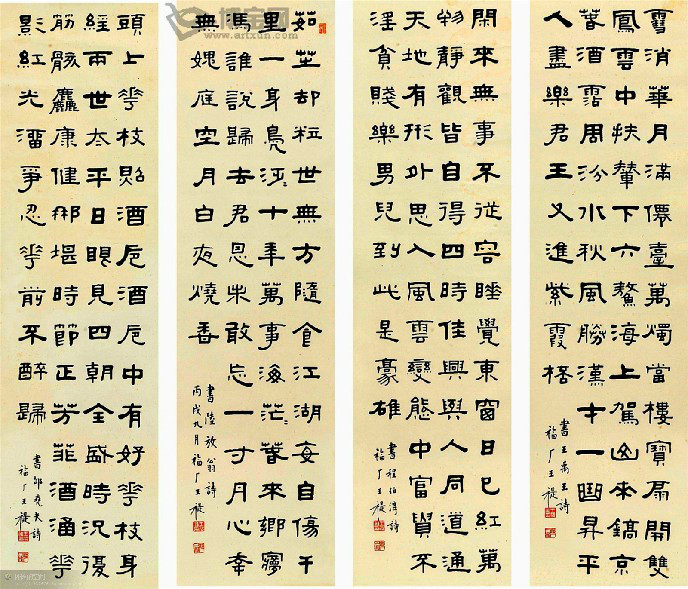 雪消華月滿僊臺萬燭當樓寶扇開雙
鳳雲中扶輦下六鰲海上駕山來鎬京
春酒霑周汾水秋風陋漢才一曲昇平
人盡樂君王又進紫霞桮
書王禹玉詩
福厂王禔
閑來無事不從容睡覺東窗日已紅萬
物靜觀皆自得四時佳興與人同道通
天地有形外思入風雲變態中富貴不
淫貧賤樂男兒到此是豪雄
書程伯淳詩
福厂王禔
茹芝却粒世無方隨食江湖每自傷千
里一身鳧泛〻十年萬事海茫〻春來鄉夢
馮誰說歸去君恩未敢忘一寸丹心幸
無媿庭空月白夜燒香
書陸放翁詩
丙戌九月福厂王禔
頭上花枝照酒卮酒卮中有好花枝身
經兩世太平日眼見四朝全盛時況復
筋骸麤康健那堪時節正芳菲酒涵花
影紅光溜爭忍花前不醉歸
書邵堯夫詩
福厂王禔
www.artxun.com